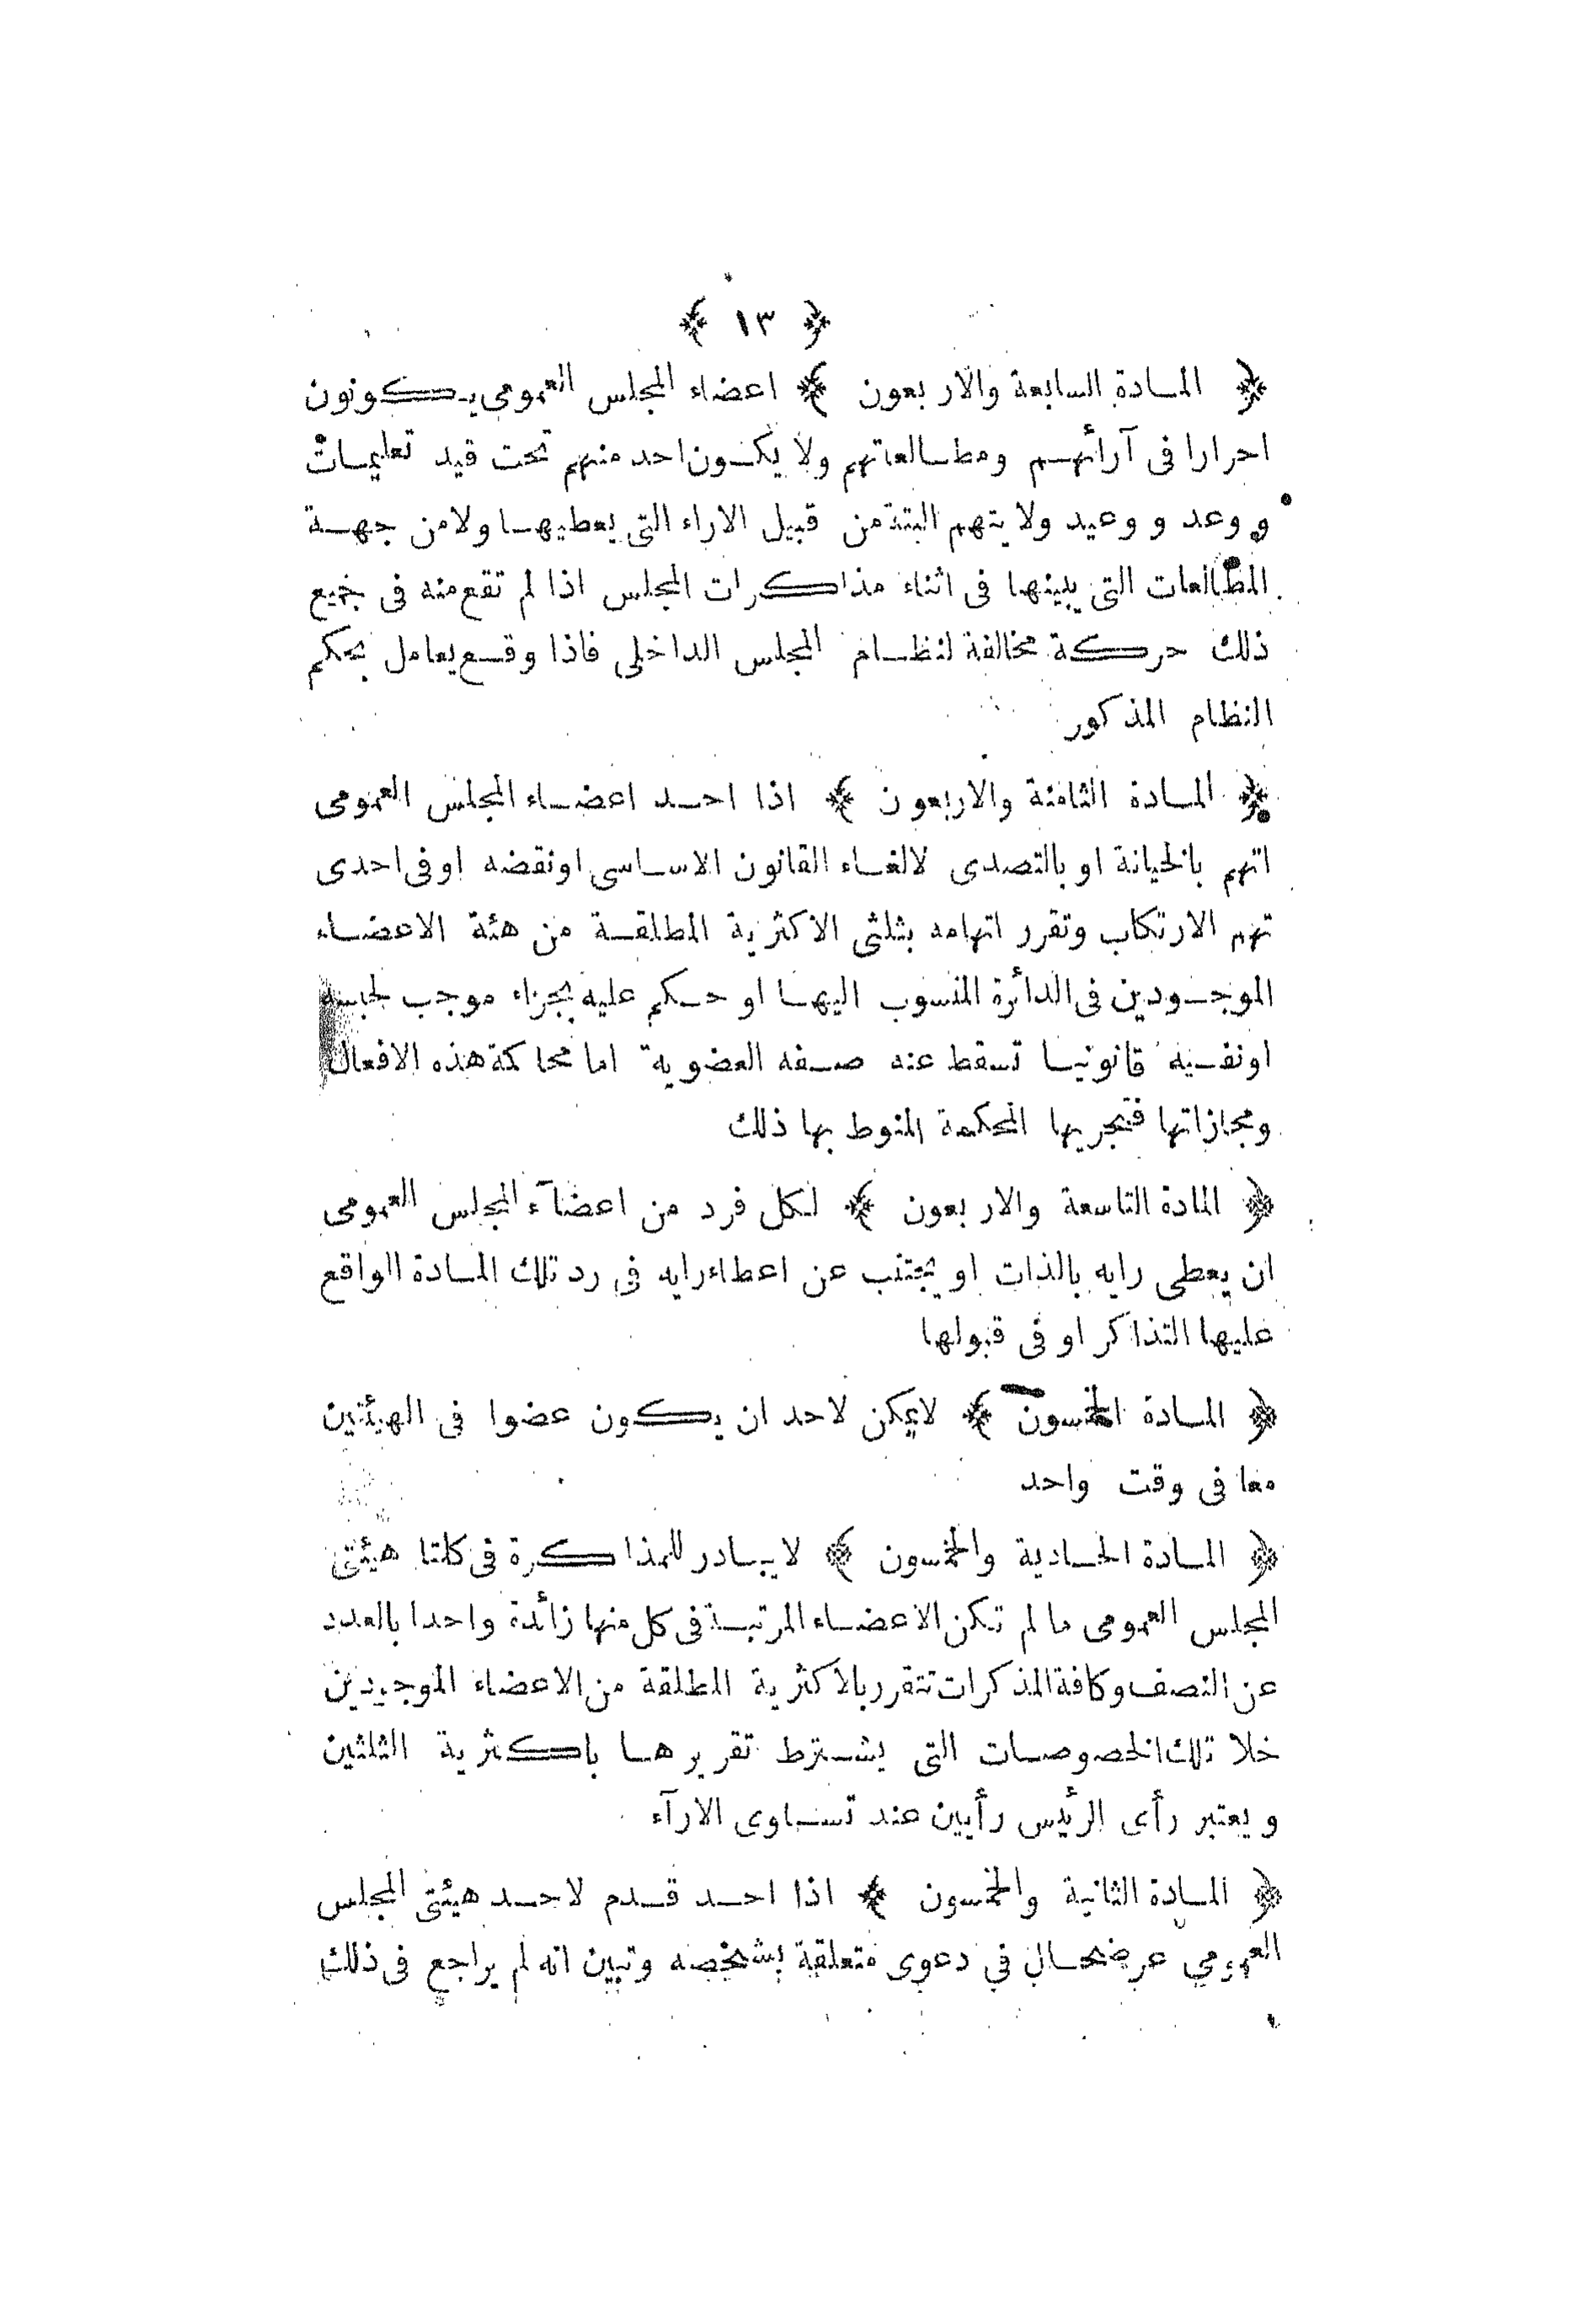 ﴿ ١٣ ﴾
﴿ المادة السابعة والاربعون ﴾ اعضاء المجلس العمومى يكونون
احرارا فى آرائهم ومطالعاتهم ولا يكون احد منهم تحت قيد تعليمات
و وعد و وعيد ولا يتهم البتة من قبيل الاراء التى يعطيها ولا من جهة
المطالعات التى يبينها فى اثناء مذاكرات المجلس اذا لم تقع منه فى جميع
ذلك حركة مخالفة لنظام المجلس الداخلى فاذا وقع يعامل بحكم
النظام المذكور
﴿ المادة الثامنة والاربعون ﴾ اذا احد اعضاء المجلس العمومى
اتهم بالخيانة او بالتصدى لالغاء القانون الاساسى او نقضه او فى احدى
تهم الارتكاب وتقرر اتهامه بثلثى الاكثرية المطلقة من هئة الاعضاء
الموجودين فى الدائرة المنسوب اليها او حكم عليه بجزاء موجب لحبسه
او نفيه قانونيا تسقط عنه صفه العضوية اما محاكمة هذه الافعال
ومجازاتها فتجريها المحكمة المنوط بها ذلك
﴿ المادة التاسعة والاربعون ﴾ لكل فرد من اعضآء المجلس العمومى
ان يعطى رايه بالذات او يجتنب عن اعطاء رايه فى رد تلك المادة الواقع
عليها التذاكر او فى قبولها
﴿ المادة الخمسون ﴾ لا يمكن لاحد ان يكون عضوا فى الهيئتين
معا فى وقت واحد
﴿ المادة الحادية والخمسون ﴾ لا يبادر للمذاكرة فى كلتا هيئتى
المجلس العمومى ما لم تكن الاعضاء المرتبة فى كل منها زائدة واحدا بالعدد
عن النصف وكافة المذكرات تتقرر بالاكثرية المطلقة من الاعضاء الموجودين
خلا تلك الخصوصات التى يشترط تقريرها باكثرية الثلثين
ويعتبر رأى الرئيس رأيين عند تساوى الارآء
﴿ المادة الثانية والخمسون ﴾ اذا احد قدم لاحد هيئتى المجلس
العمومي عرضحال في دعوى متعلقة بشخصه وتبين انه لم يراجع فى ذلك